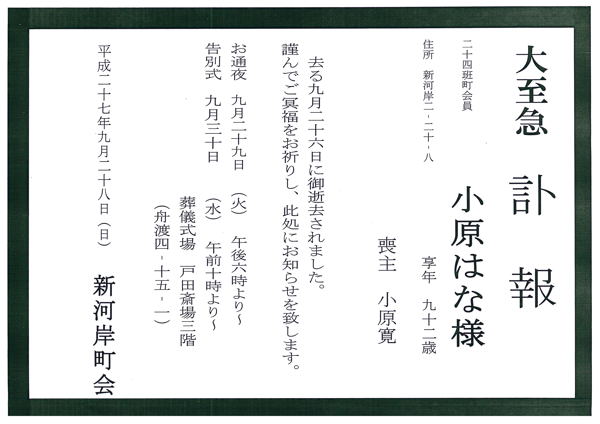 大至急　訃報
二十四班町会員
住所　新河岸二-二十-八
小原はな様
享年　九十二歳
喪主　小原寛
去る九月二十六日に御逝去されました。
謹んでご冥福をお祈りし、此処にお知らせを致します。
お通夜　九月二十九日　（火）　午後六時より～
告別式　九月三十日　（水）　午前十時より～
葬儀式場　戸田斎場三階
（舟渡四-十五-一）
平成二十七年九月二十八日（日）
新河岸町会